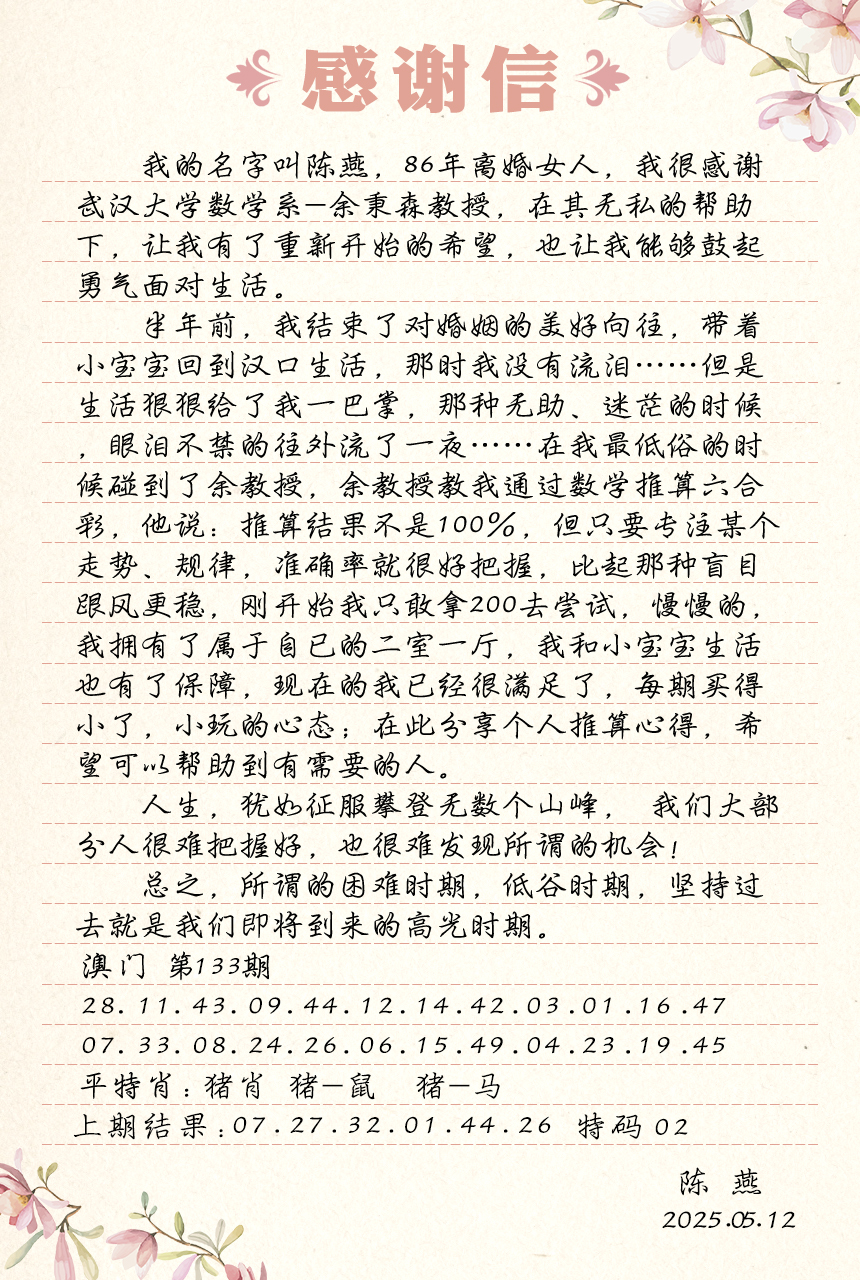 感谢信
我的名字叫陈燕，86年离婚女人，我很感谢
武汉大学数学系—余秉森教授，在其无私的帮助
下，让我有了重新开始的希望，也让我能够鼓起
勇气面对生活。
半年前，我结束了对婚姻的美好向往，带着
小宝宝回到汉口生活，那时我没有流泪……但是
生活狠狠给了我一巴掌，那种无助、迷茫的时候
，眼泪不禁的往外流了一夜……在我最低俗的时
候碰到了余教授，余教授教我通过数学推算六合
彩，他说：推算结果不是100%，但只要专注某个
走势、规律，准确率就很好把握，比起那种盲目
跟风更稳，刚开始我只敢拿200去尝试，慢慢的，
我拥有了属于自己的二室一厅，我和小宝宝生活
也有了保障，现在的我已经很满足了，每期买得
小了，小玩的心态；在此分享个人推算心得，希
望可以帮助到有需要的人。
人生，犹如征服攀登无数个山峰， 我们大部
分人很难把握好，也很难发现所谓的机会！
总之，所谓的困难时期，低谷时期，坚持过
去就是我们即将到来的高光时期。
澳门 第133期
28.11.43.09.44.12.14.42.03.01.16.47
07.33.08.24.26.06.15.49.04.23.19.45
平特肖：猪肖 猪—鼠 猪—马
上期结果：07.27.32.01.44.26 特码 02
陈 燕
2025.05.12